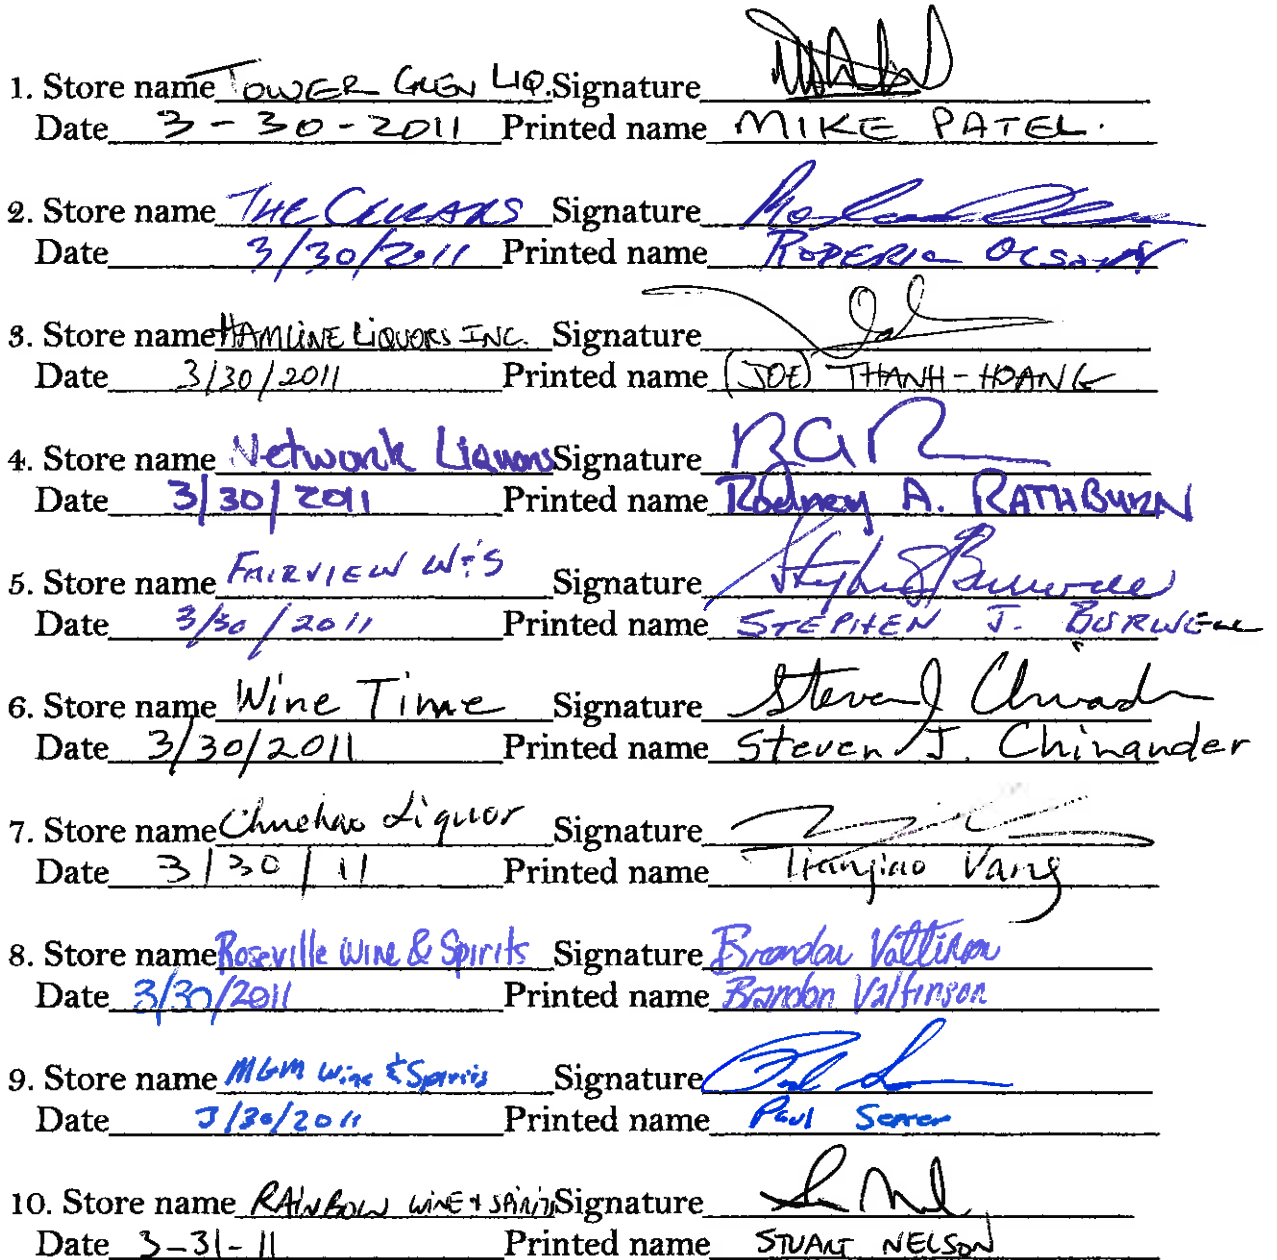 1. Store name TOWER GLEN LIQ. Signature
Date 3-30-2011 Printed name MIKE PATEL.
2. Store name THE CELLARS Signature
Date 3/30/2011 Printed name RODERIC OLSON
3. Store name HAMLINE LIQUORS INC. Signature
Date 3/30/2011 Printed name (JOE) THANH-HOANG
4. Store name Network Liquors Signature RAR
Date 3/30/2011 Printed name Rodney A. RATHBURN
5. Store name FAIRVIEW W&S Signature
Date 3/30/2011 Printed name STEPHEN J. BURWELL
6. Store name Wine Time Signature Steven J Chinander
Date 3/30/2011 Printed name Steven J. Chinander
7. Store name Chuehao Liquor Signature
Date 3/30/11 Printed name Vang
8. Store name Roseville Wine & Spirits Signature Brandon Valtinson
Date 3/30/2011 Printed name Brandon Valtinson
9. Store name MGM Wine & Spirits Signature
Date 3/30/2011 Printed name Paul
10. Store name RAINBOW WINE + SPIRITS Signature
Date 3-31-11 Printed name STUART NELSON